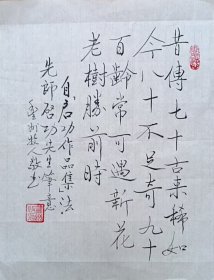 昔傳七十古来稀如
今八十不足奇九十
百齡常可遇新花
老樹勝前時
自启功作品集法
先師啓功先生筆意